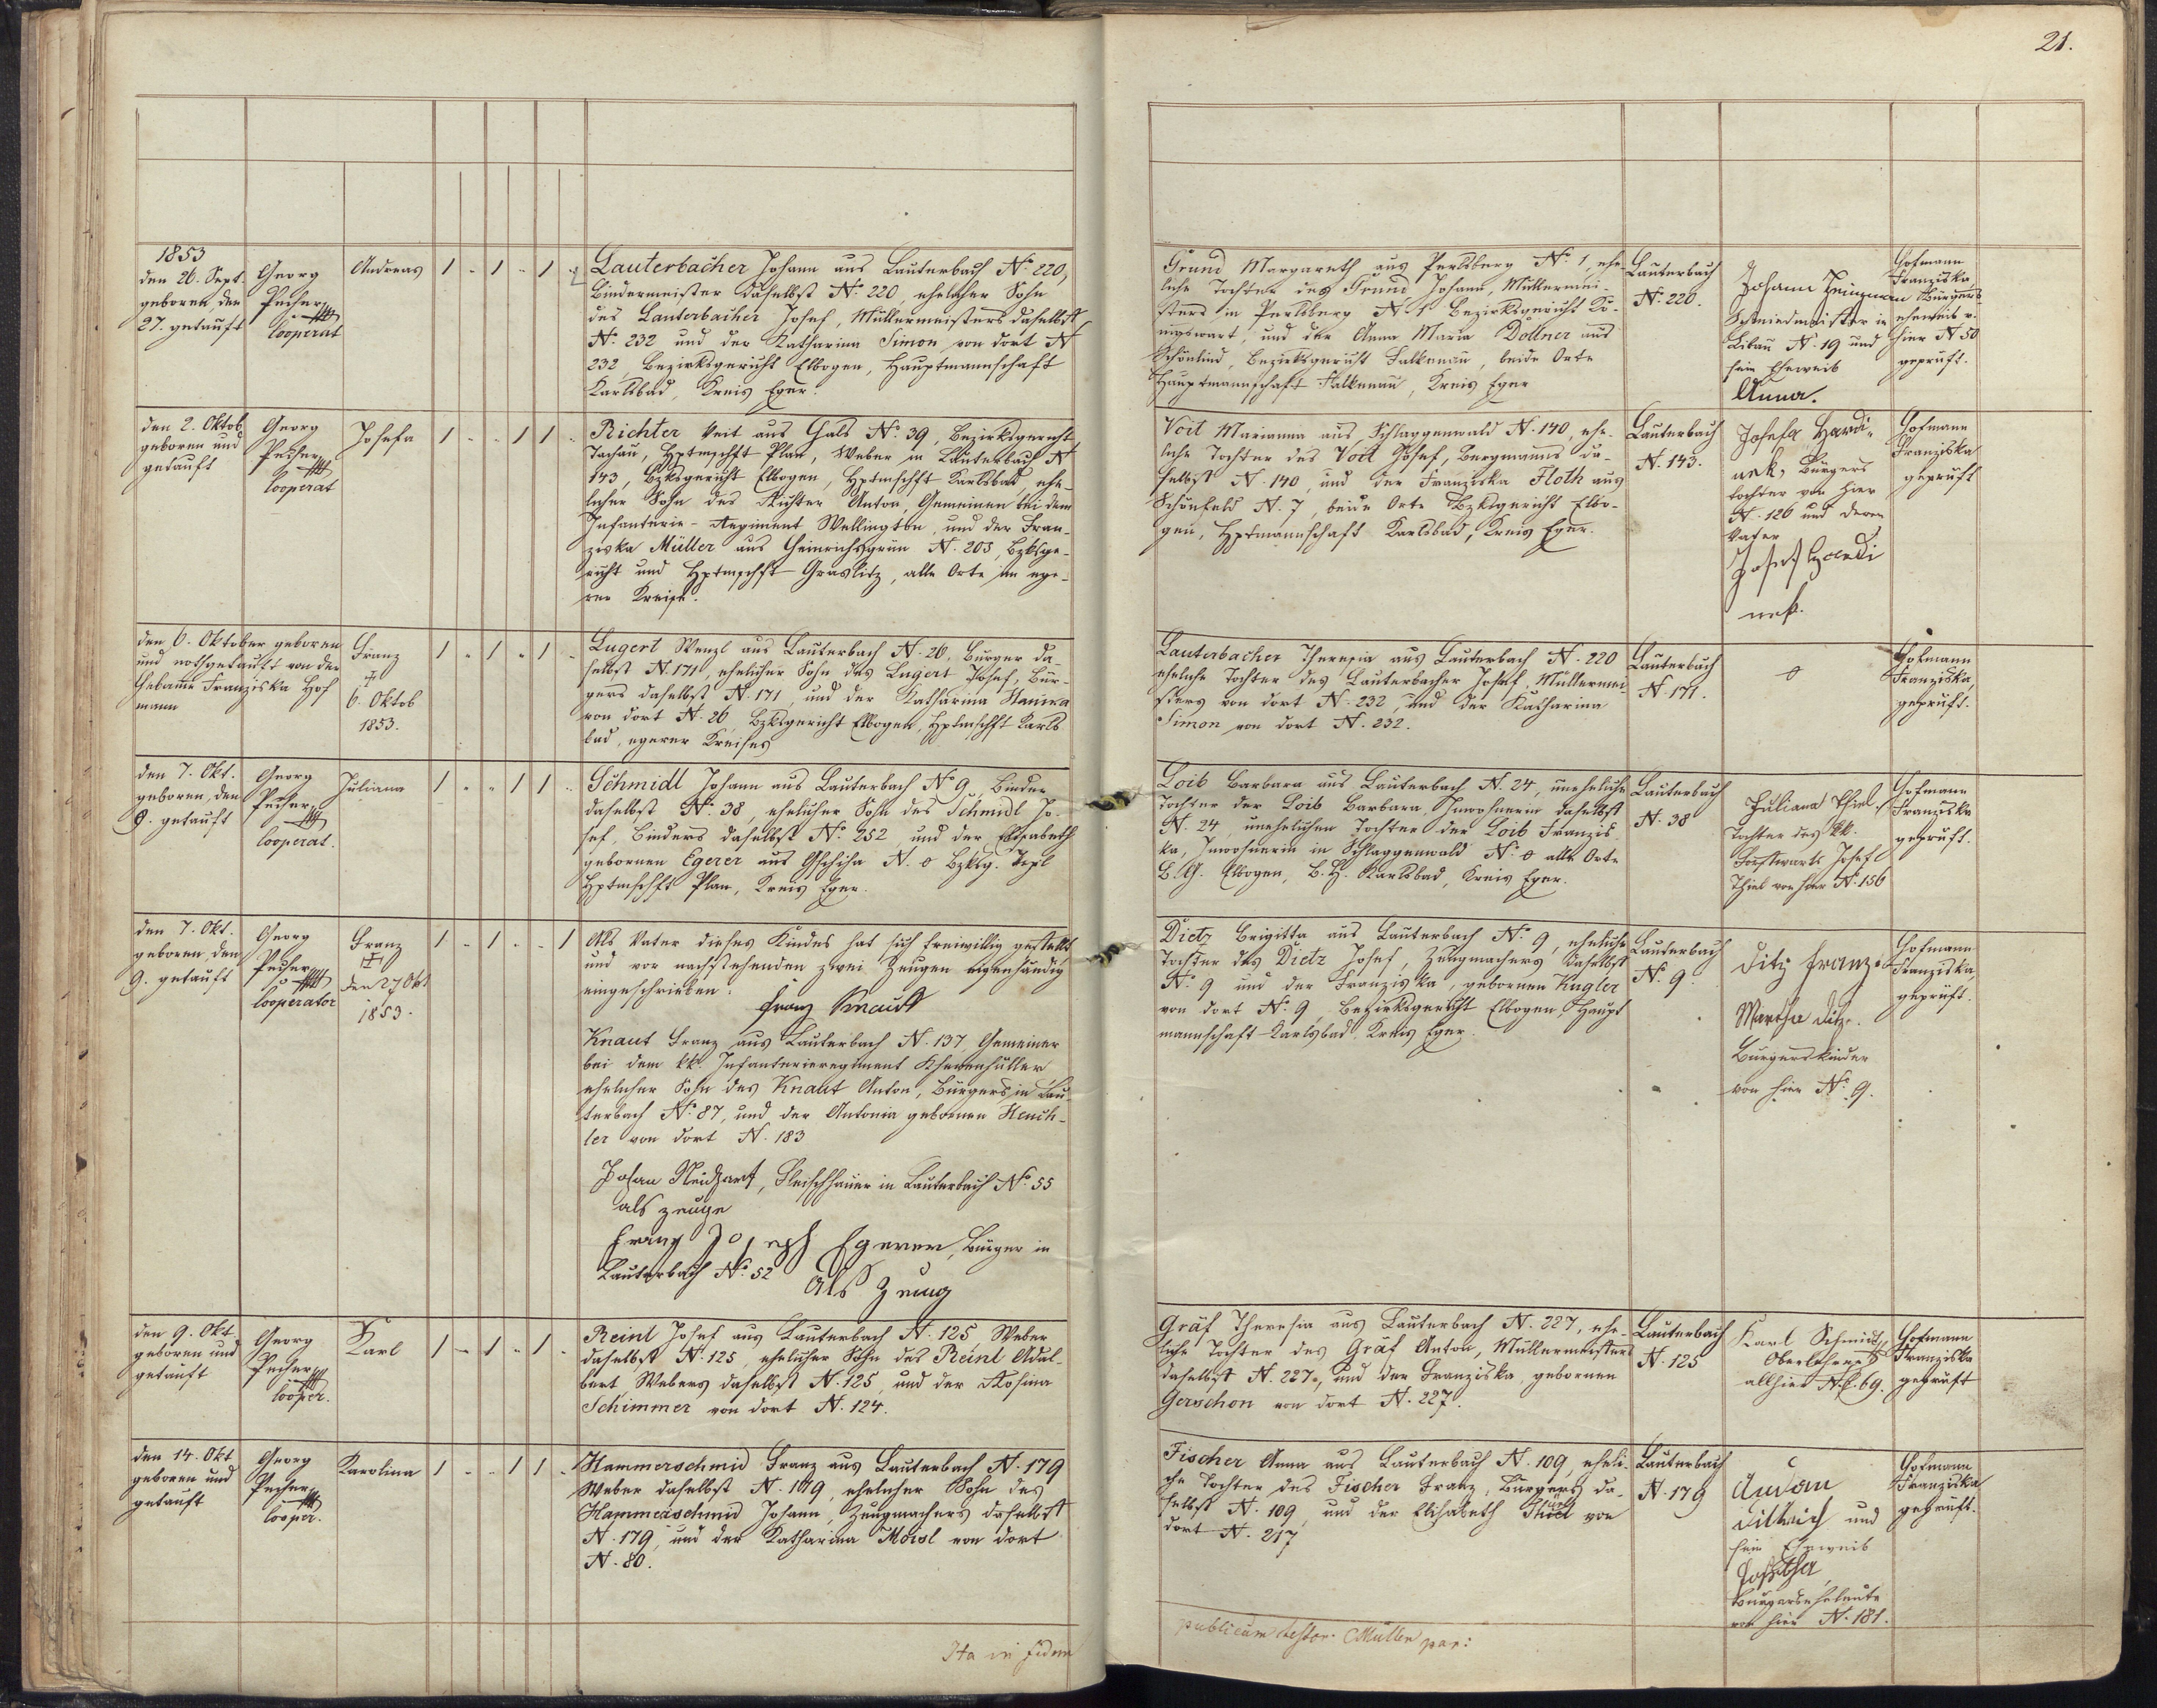 21.
1853
den 26. Sept.
geboren den
27. getauft
Georg
Pecher
Cooperat
Andreas
1 - 1 - 1 -
Lauterbacher Johann aus Lauterbach No 220,
Bindermeister daselbst No. 220, ehelicher Sohn
des Lauterbacher Josef, Müllermeisters daselbst
No. 232 und der Katharina Simon von dort N
232, Bezirksgericht Elbogen, Hauptmannschaft
Karlsbad, Kreis Eger.
Grund Margareth aus Perlsberg No. 1, ehe-
liche Tochter des Grund Johann, Müllermei-
sters in Perlsberg N. 1 Bezirksgericht Kö-
nigswart, und der Anna Maria Dollner aus
Schönlind, Bezirksgericht Falkenau, beide Orte
Hauptmannschaft Falkenau, Kreis Eger
Lauterbach
No. 220.
Johann
Schmiedmeister in
Libau N. 19 und
sein Eheweib
Anna.
Hofmann
Franziska
Bürgers-
eheweib v.
hier N 50
geprüft.
den 2. Oktob
geboren und
getauft
Georg
Pecher
Cooperat
Josefa
1 - - 1 1 -
Richter Veit aus Hals No. 39, Bezirksgericht
Tachau, Hptmschft Plan, Weber in Lauterbach N
143, Bzksgericht Elbogen, Hptmschft Karlsbad, ehe-
licher Sohn des Richter Anton, Gemeinen bei dem
Infanterie-Regiment Wellington, und der Fran-
ziska Müller aus Heinrichsgrün N. 203, Bzksge-
richt und Hptmschft Graslitz, alle Orte im ege-
rer Kreise.
Voit Marianna aus Schlaggenwald N. 140, ehe-
liche Tochter des Voit Josef, Bergmanns da-
selbst N. 140, und der Franziska Floth aus
Schönfeld N. 7, beide Orte Bzksgericht Elbo-
gen, Hptmannschaft Karlsbad, Kreis Eger.
Lauterbach
N. 143.
Josefa Hardi-
nek, Bürgers
tochter von hier
N. 126 und deren
Vater
Josef Hardi
nek.
Hofmann
Franziska
geprüft
den 6. Oktober geboren
und nothgetauft von der
Hebamme Franziska Hof
mann
Franz
†
6. Oktob
1853.
1 - 1 - 1 -
Lugert Wenzl aus Lauterbach N. 26, Bürger da-
selbst N. 171, ehelicher Sohn des Lugert Josef, Bür-
gers daselbst N. 171, und der Katharina Hanika
von dort N. 26, Bzksgericht Elbogen, Hptmschft Karls
bad, egerer Kreises
Lauterbacher Theresia aus Lauterbach N. 220
eheliche Tochter des Lauterbacher Josef, Müllermei-
sters von dort N. 232, und der Katharina
Simon von dort N. 232.
Lauterbach
N. 171.
o
Hofmann
Franziska,
geprüft.
den 7. Okt.
geboren, den
9. getauft
Georg
Pecher
Cooperat.
Juliana
1 - - 1 1 -
Schmidl Johann aus Lauterbach No 9, Binder
daselbst N. 38, ehelicher Sohn des Schmidl Jo-
sef, Binders daselbst No. 252, und der Elisabeth
gebornen Egerer aus N. 0 Bzksg. Tepl
Hptmschft Plan, Kreis Eger.
Loib Barbara aus Lauterbach N. 24, uneheliche
Tochter der Loib Barbara, Inwohnerin daselbst
N. 24, unehelichen Tochter der Loib Franzis-
ka, Inwohnerin in Schlaggenwald N. 0 alle Orte
B. G. Elbogen, B. H. Karlsbad, Kreis Eger.
Lauterbach
N. 38
Juliana Thiel
Tochter des kk.
Forstwarts Josef
Thiel von hier N. 156
Hofmann
Franziska
geprüft.
den 7. Okt.
geboren, den
9. getauft
Georg
Pecher
Cooperator
Franz
†
den 27 Okt
1853.
1 - 1 - - 1
Als Vater dieses Kindes hat sich freiwillig gestellt
und vor nachstehenden zwei Zeugen eigenhändig
eingeschrieben.
Franz Knaut
Knaut Franz aus Lauterbach N. 137, Gemeiner
bei dem kk. Infanterieregiment Khevenhüller
ehelicher Sohn des Knaut Anton, Bürgers in Lau-
terbach No. 87, und der Antonia gebornen Heuch-
ler von dort N. 183
Johan Neidhart, Fleischhauer in Lauterbach No. 55
als zeuge
Franz Joseph Egerer, Bürger in
Lauterbach No. 52
Als Zeug
Dietz Brigitta aus Lauterbach No. 9, eheliche
Tochter des Dietz Josef, Zeugmachers daselbst
No. 9 und der Franziska, gebornen Kugler
von dort No. 9, Bezirksgericht Elbogen, Haupt
mannschaft Karlsbad, Kreis Eger.
Lauterbach
No. 9.
Ditz Franz
Martha Ditz.
Bürgerskinder
von hier No. 9.
Hofmann
Franziska,
geprüft.
den 9. Okt
geboren und
getauft
Georg
Pecher
Cooper.
Karl
1 - 1 - 1 -
Reinl Josef aus Lauterbach N. 125 Weber
daselbst N. 125, ehelicher Sohn des Reinl Adal-
bert, Webers daselbst N. 125, und der Rosina
Schimmer von dort N. 124.
Gräf Theresia aus Lauterbach N. 227, ehe-
liche Tochter des Gräf Anton, Müllermeisters
daselbst N. 227, und der Franziska, gebornen
Gerschon von dort N. 227.
Lauterbach
N. 125
Karl Schmidt
Oberlehrer
allhier N. C. 69.
Hofmann
Franziska
geprüft
den 14. Okt
geboren und
getauft
Georg
Pecher
Cooper.
Karolina
1 - - 1 1 -
Hammerschmid Franz aus Lauterbach N. 179
Weber daselbst N. 179, ehelicher Sohn des
Hammerschmid Johann, Zeugmachers daselbst
N. 179, und der Katharina Moisl von dort
N. 80.
Fischer Anna aus Lauterbach N. 109, eheli-
che Tochter des Fischer Franz, Bürgers da-
selbst N. 109, und der Elisabeth von
dort N. 217
Lauterbach
N. 179
Anton
Dittrich und
sein Eheweib
Josepha,
Bürgerseheleute
von hier N. 181.
Hofmann
Franziska
geprüft.
Ita in fidem
publicam testor. Müller par: